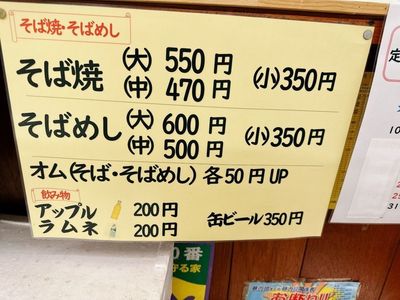 そば焼・そばめし
そば焼 (大) 550円 (小)350円
(中) 470円
そばめし (大) 600円 (小)350円
(中) 500円
オム(そば・そばめし) 各50円UP
飲み物
アップル 200円 缶ビール350円
ラムネ 200円
定
10
25
番
守る家